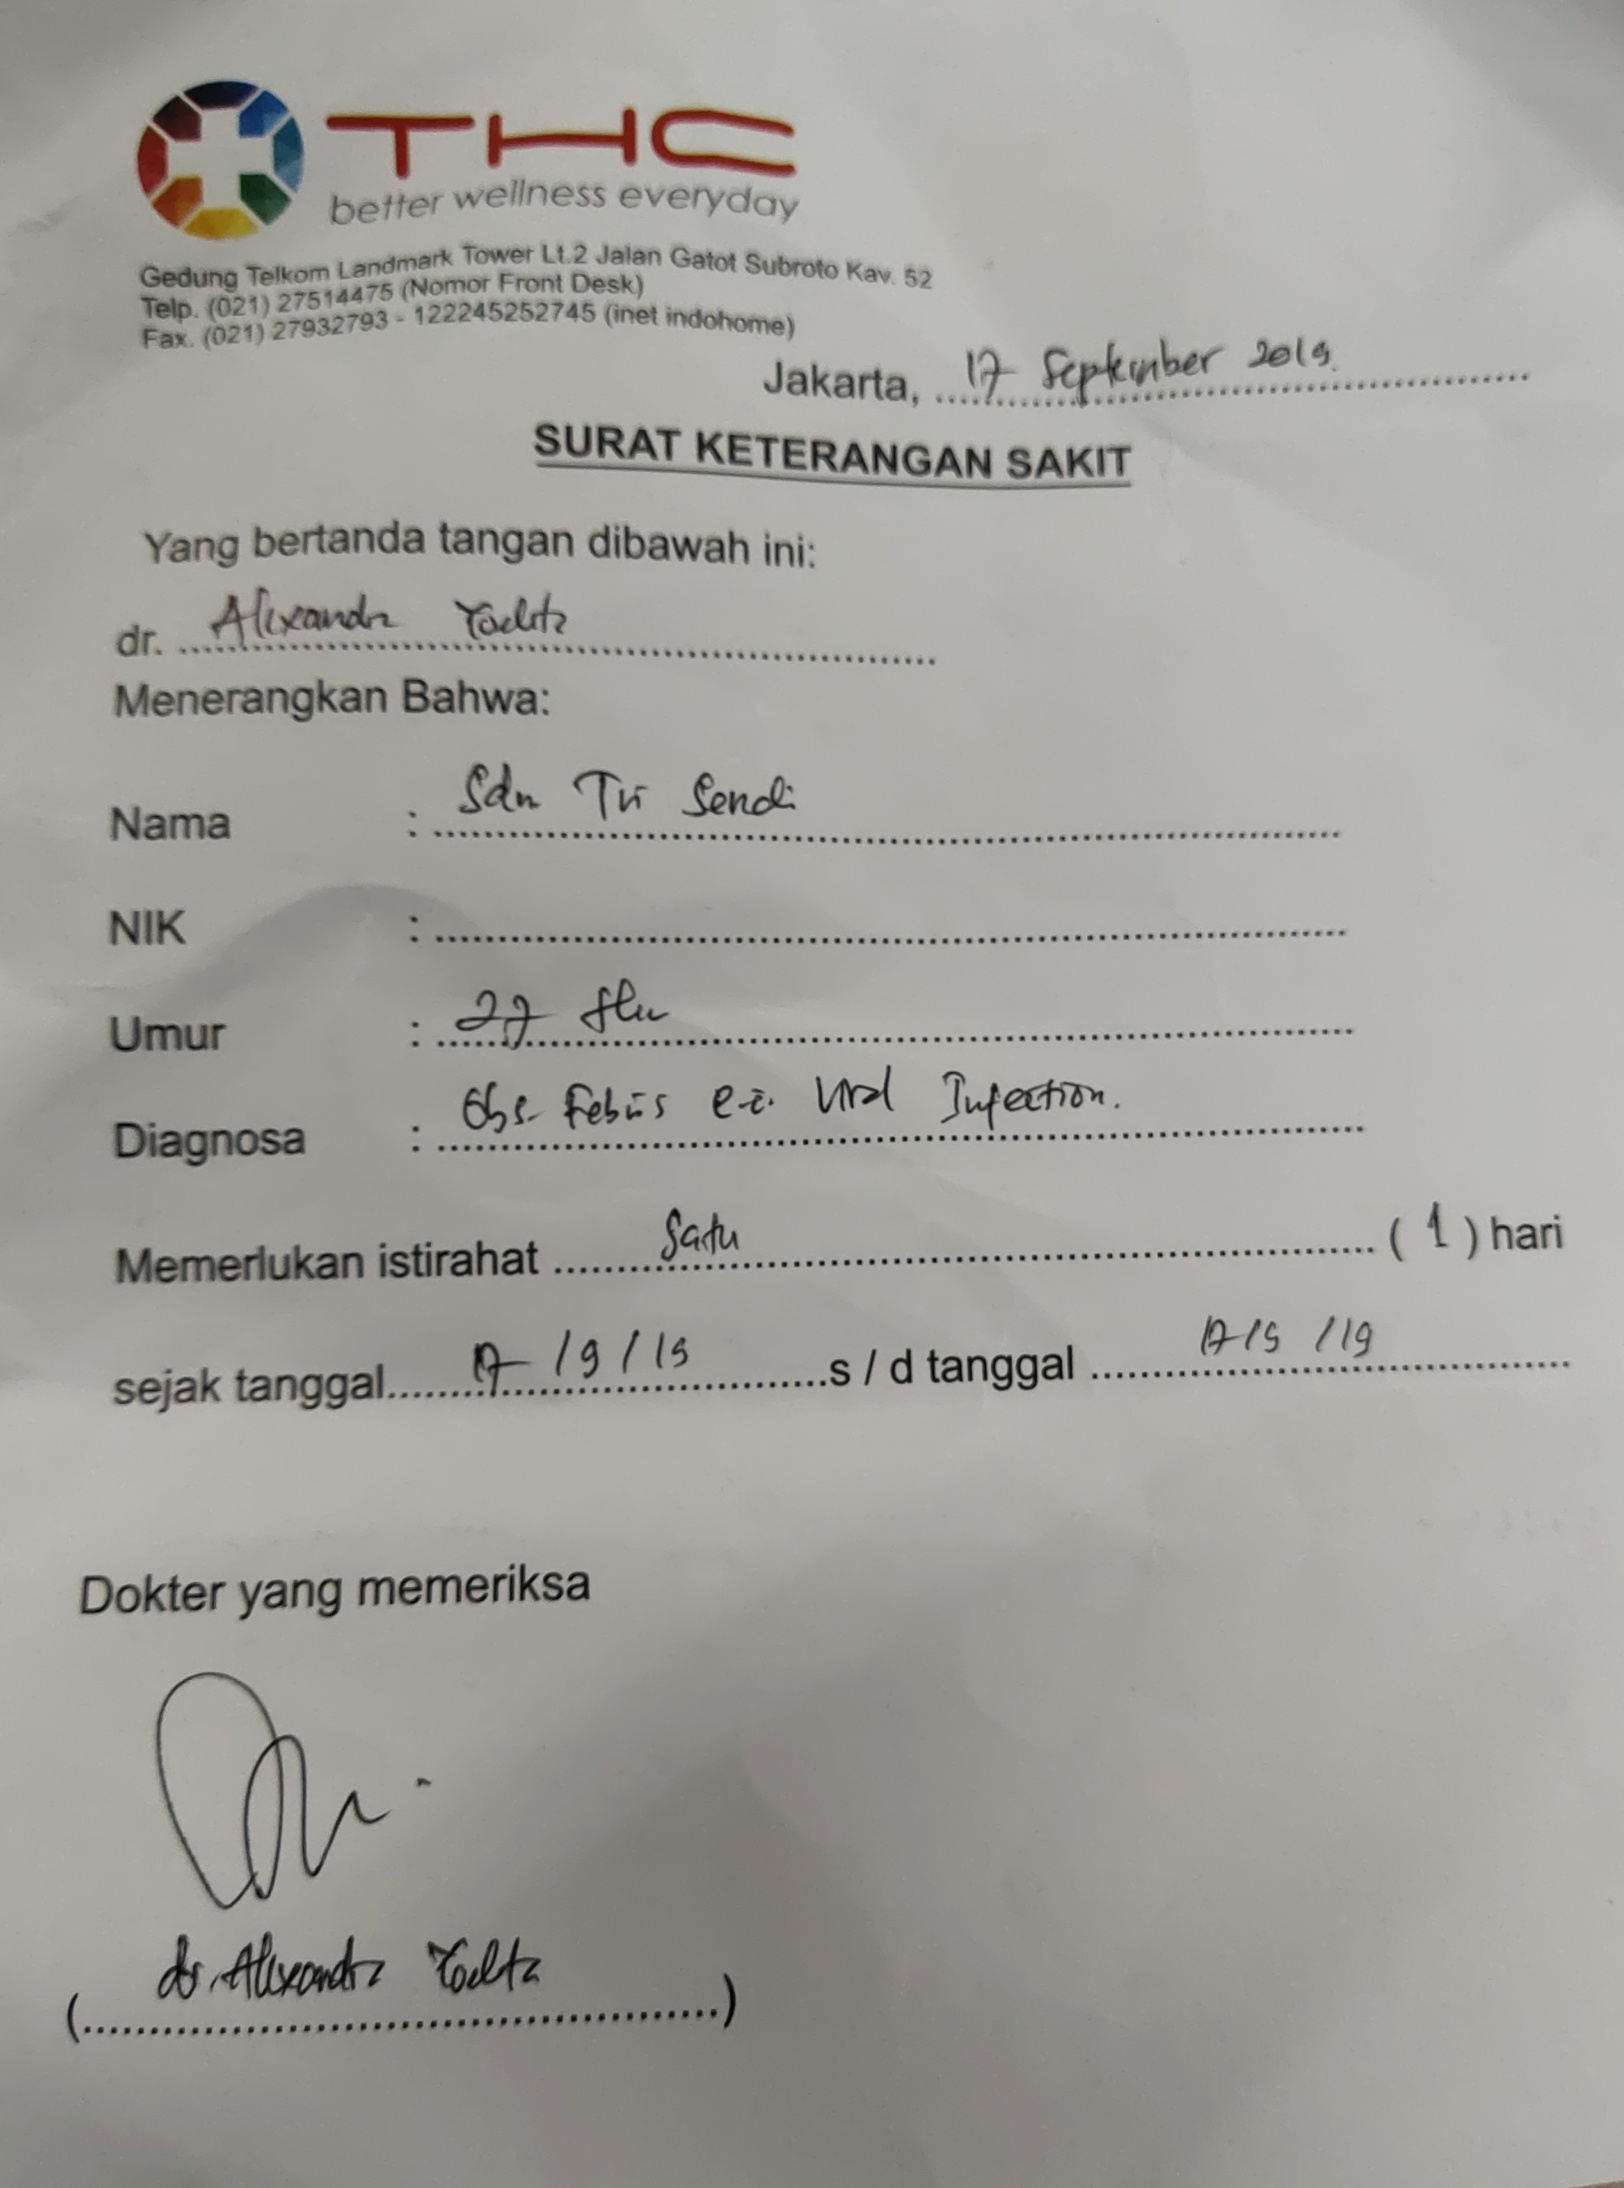 THC
better wellness everyday
Gedung Telkom Landmark Tower Lt.2 Jalan Gatot Subroto Kav. 52
Telp. (021) 27514475 (Nomor Front Desk)
Fax. (021) 27932793 - 122245252745 (inet indohome)
Jakarta, 17 September 2019.
SURAT KETERANGAN SAKIT
Yang bertanda tangan dibawah ini:
dr. Alexandra
Menerangkan Bahwa:
Nama : Sdn Tri Sendi
NIK :
Umur : 27 thn
Diagnosa : Obs. Febris e.c. Viral Infection.
Memerlukan istirahat Satu ( 1 ) hari
sejak tanggal 17 / 9 / 19 s / d tanggal 17 / 9 / 19
Dokter yang memeriksa
(dr. Alexandra )